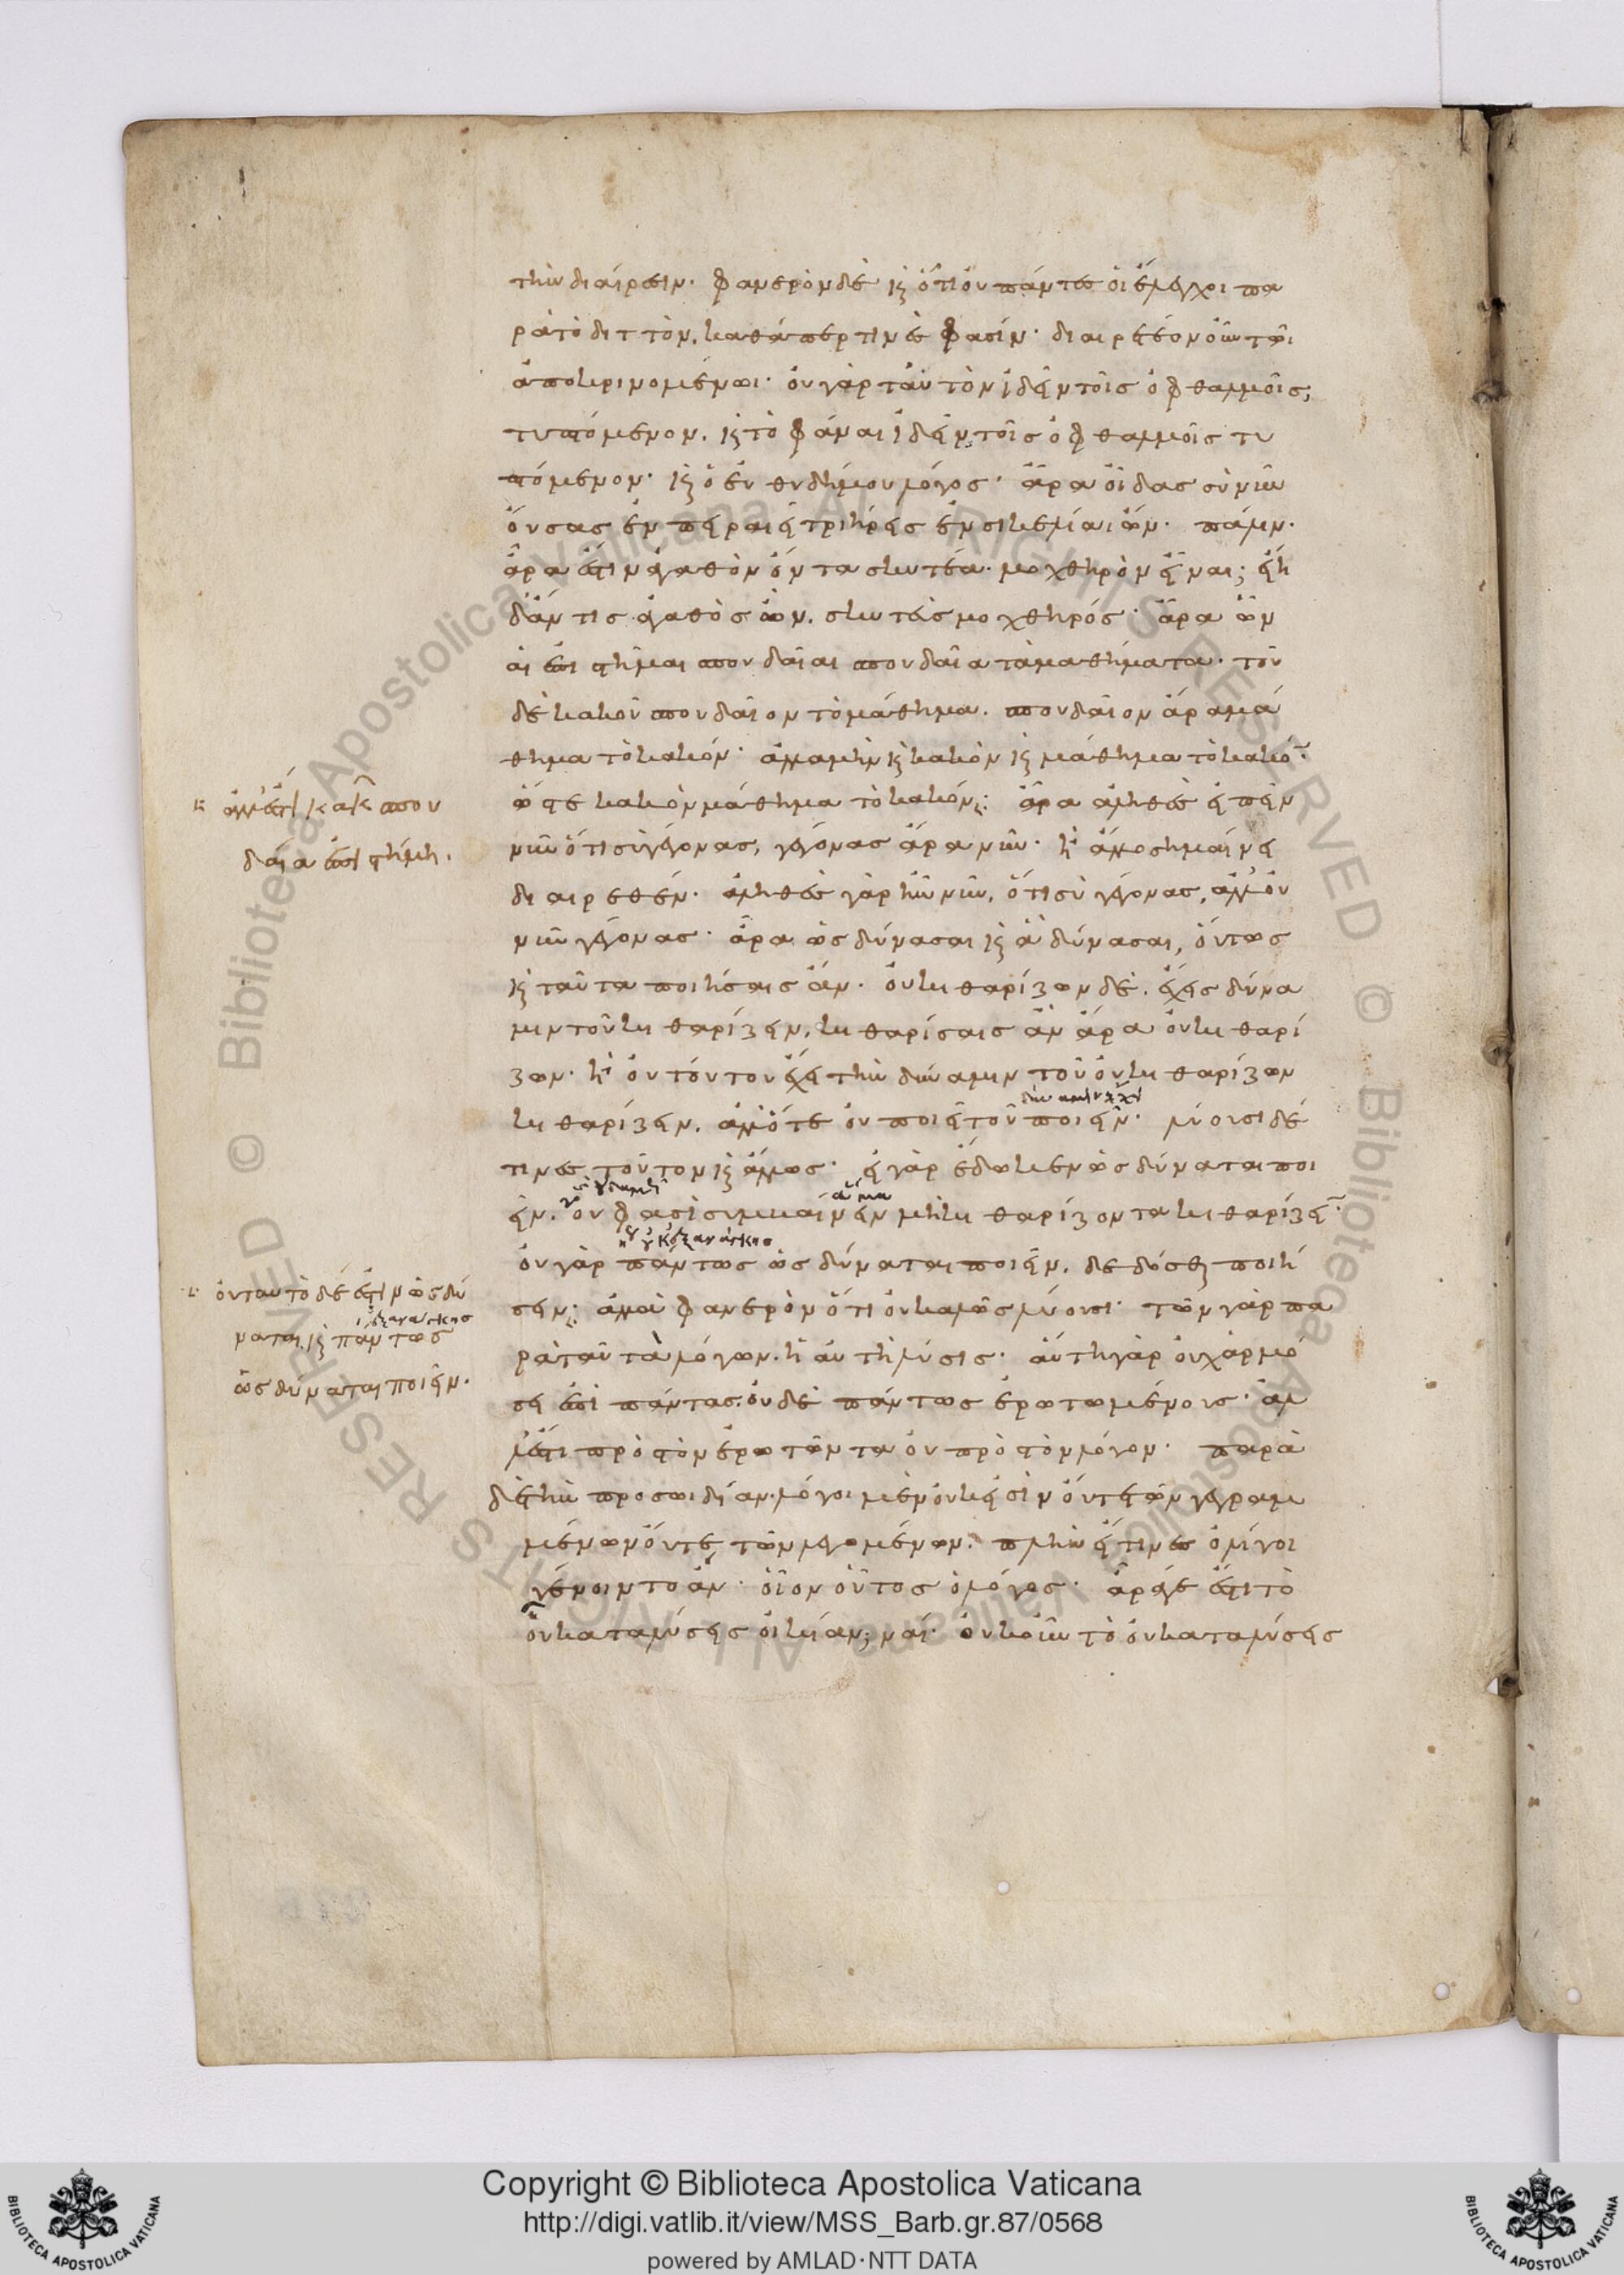 τὴν διαίρεσιν· φανερὸν δὲ κ̀ ὅτι οὐ πάντες οἱ ἔλεγχοι πα
ρὰ τὸ διττόν, καθάπερ τινές φασίν· διαιρετέον οὖν τῶι
ἀποκρινομένωι· οὐ γὰρ ταὐτὸν ἰδεῖν τοῖς ὀφθαλμοῖς;
τυπτόμενον. κ̀ τὸ φάναι ἰδεῖν τοῖς ὀφθαλμοῖς τυ
πτόμενον· κ̀ ὁ εὐθυδήμου λόγος· ἆρα οἶδας σὺ νῦν
οὔσας ἐν πειραιεῖ τριήρεις ἐν σικελίαι ὤν· πάλιν·
ἆρα ἔστιν ἀγαθὸν ὄντα σκυτέα· μοχθηρὸν εἶναι; εἴη
δ' ἄν τις ἀγαθὸς ὢν. σκυτεὺς μοχθηρός· ἆρα ὧν
αἱ ἐπιστῆμαι σπουδαῖαι σπουδαῖα τὰ μαθήματα· τοῦ
δὲ κακοῦ σπουδαῖον τὸ μάθημα. σπουδαῖον ἄρα μά
θημα τὸ κακόν· ἀλλὰ μὴν κ̀ κακὸν κ̀ μάθημα τὸ κακό¯·
ὥστε κακὸν μάθημα τὸ κακόν: ἆρα ἀληθὲς εἰπεῖν
νῦν ὅτι σὺ γέγονας, γέγονας ἄρα νῦν· ἢ ἄλλο σημαίνει
διαιρεθέν· ἀληθὲς γὰρ ἦν νῦν, ὅτι σὺ γέγονας, ἀλλ' οὐ
νῦν γέγονας· ἆρα ὡς δύνασαι κ̀ ἃ δύνασαι, οὕτως
κ̀ ταῦτα ποιήσαις ἄν· οὐ κιθαρίζων δέ. ἔχεις δύνα
μιν τοῦ κιθαρίζειν, κιθαρίσαις ἂν ἄρα οὐ κιθαρί
ζων· ἢ οὐ τούτου ἔχει τὴν δύναμιν τοῦ οὐ κιθαρίζων
κιθαρίζειν. ἀλλ' ὅτε οὐ ποιεῖ τοῦ ποιεῖν· λύουσι δέ
τινες τοῦτον κ̀ ἄλλως· εἰ γὰρ ἔδωκεν ὡς δύναται ποι
εῖν. οὔ φασι συμβαίνειν μὴ κιθαρίζοντα κιθαρίζει¯·
οὐ γὰρ πάντως ὡς δύναται ποιεῖν, δεδόσθαι ποιή
σειν: ἀλλὰ φανερὸν ὅτι οὐ καλῶς λύουσι· τῶν γὰρ πα
ρὰ ταὐτὰ λόγων. ἡ αὐτὴ λύσις· αὕτη γὰρ οὐχ ἁρμό
σει ἐπὶ πάντας. οὐδὲ πάντως ἐρωτωμένους· ἀλ
λ' ἔστι πρὸς τὸν ἐρωτῶντα οὐ πρὸς τὸν λόγον· παρὰ
δὲ τὴν προσωιδίαν. λόγοι μὲν οὐκ εἰσὶν οὔτε τῶν γεγραμ
μένων οὔτε τῶν λεγομένων. πλὴν εἴ τινες ὀλίγοι
γένοιντο ἄν· οἷον οὗτος ὁ λόγος· ἆρά γε ἔστι τὸ
οὗ καταλύσεις οἰκίαν; ναί· οὐκοῦν τὸ οὐ καταλύσεις
ἀλλ' ἔστι κακῶν σπου
δαία ἐπιστήμη.
οὐ ταὐτὸ δέ ἐστιν ὡς δύ
ἐξ ἀνάγκης
ναται κ̀ πάντως
ὡς δύναται ποιεῖν.